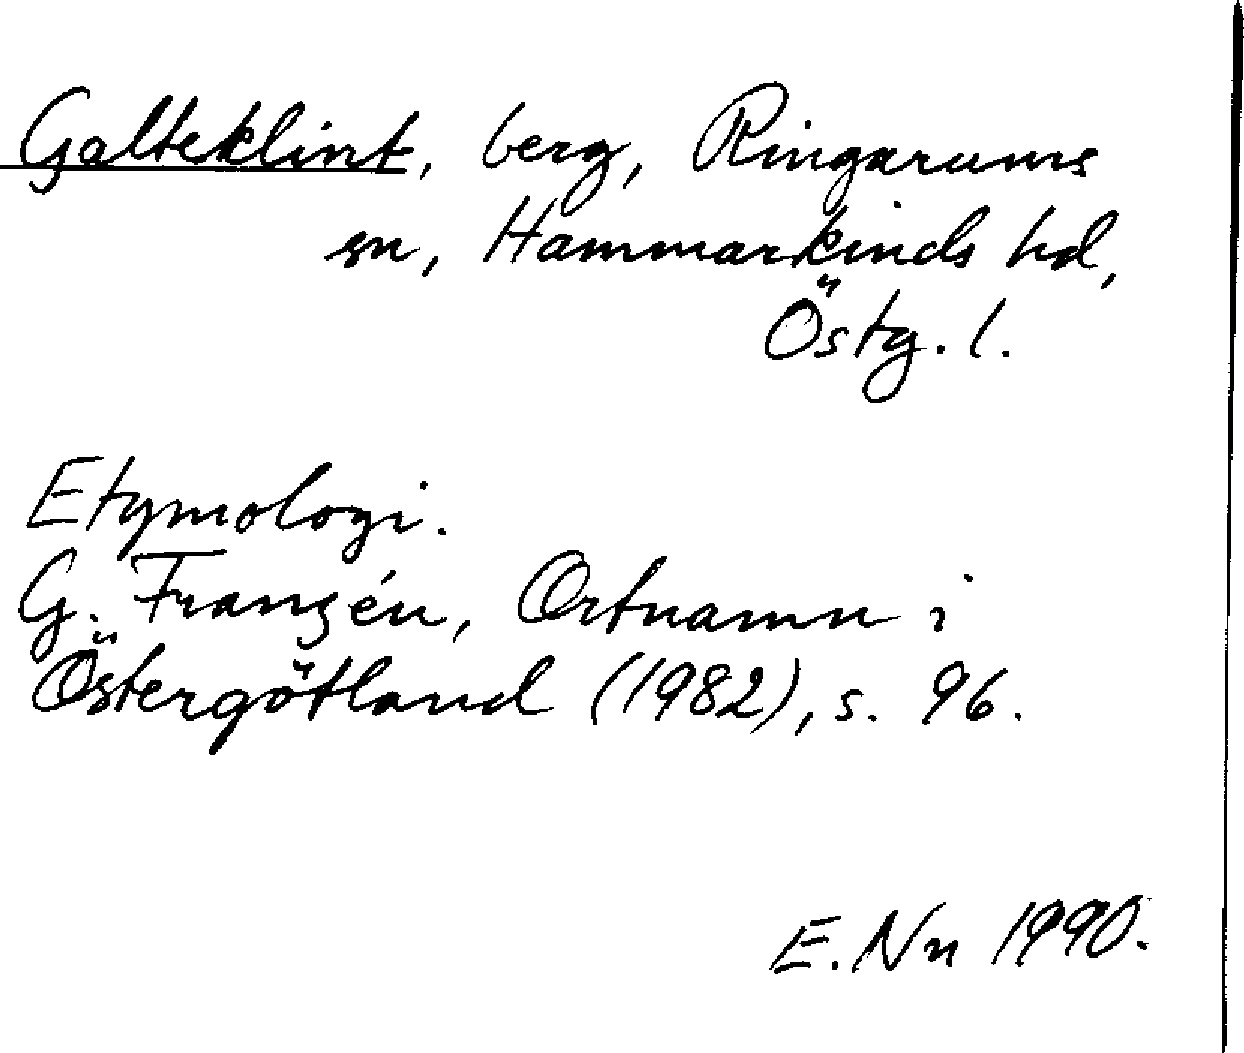 Galteklint, berg, Ringarums
sn, Hammarkinds hd,
Östg. l.
Etymologi.
G. Franzén, Ortnamn i
Östergötland (1982), s. 96.
E. Nn 1990.